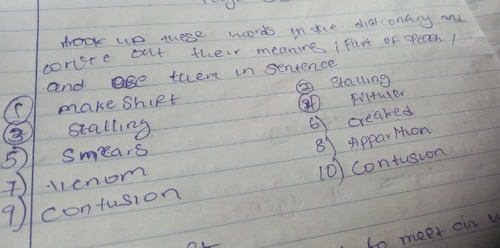 Look up these words in the dictionary and
write out their meaning, part of speech,
and use them in sentence
① makeshift ② Stalling
③ Stalling ④
5) Smears 6) Creaked
7) Venom 8) Apparition
9) Contusion 10) Contusion
to meet an